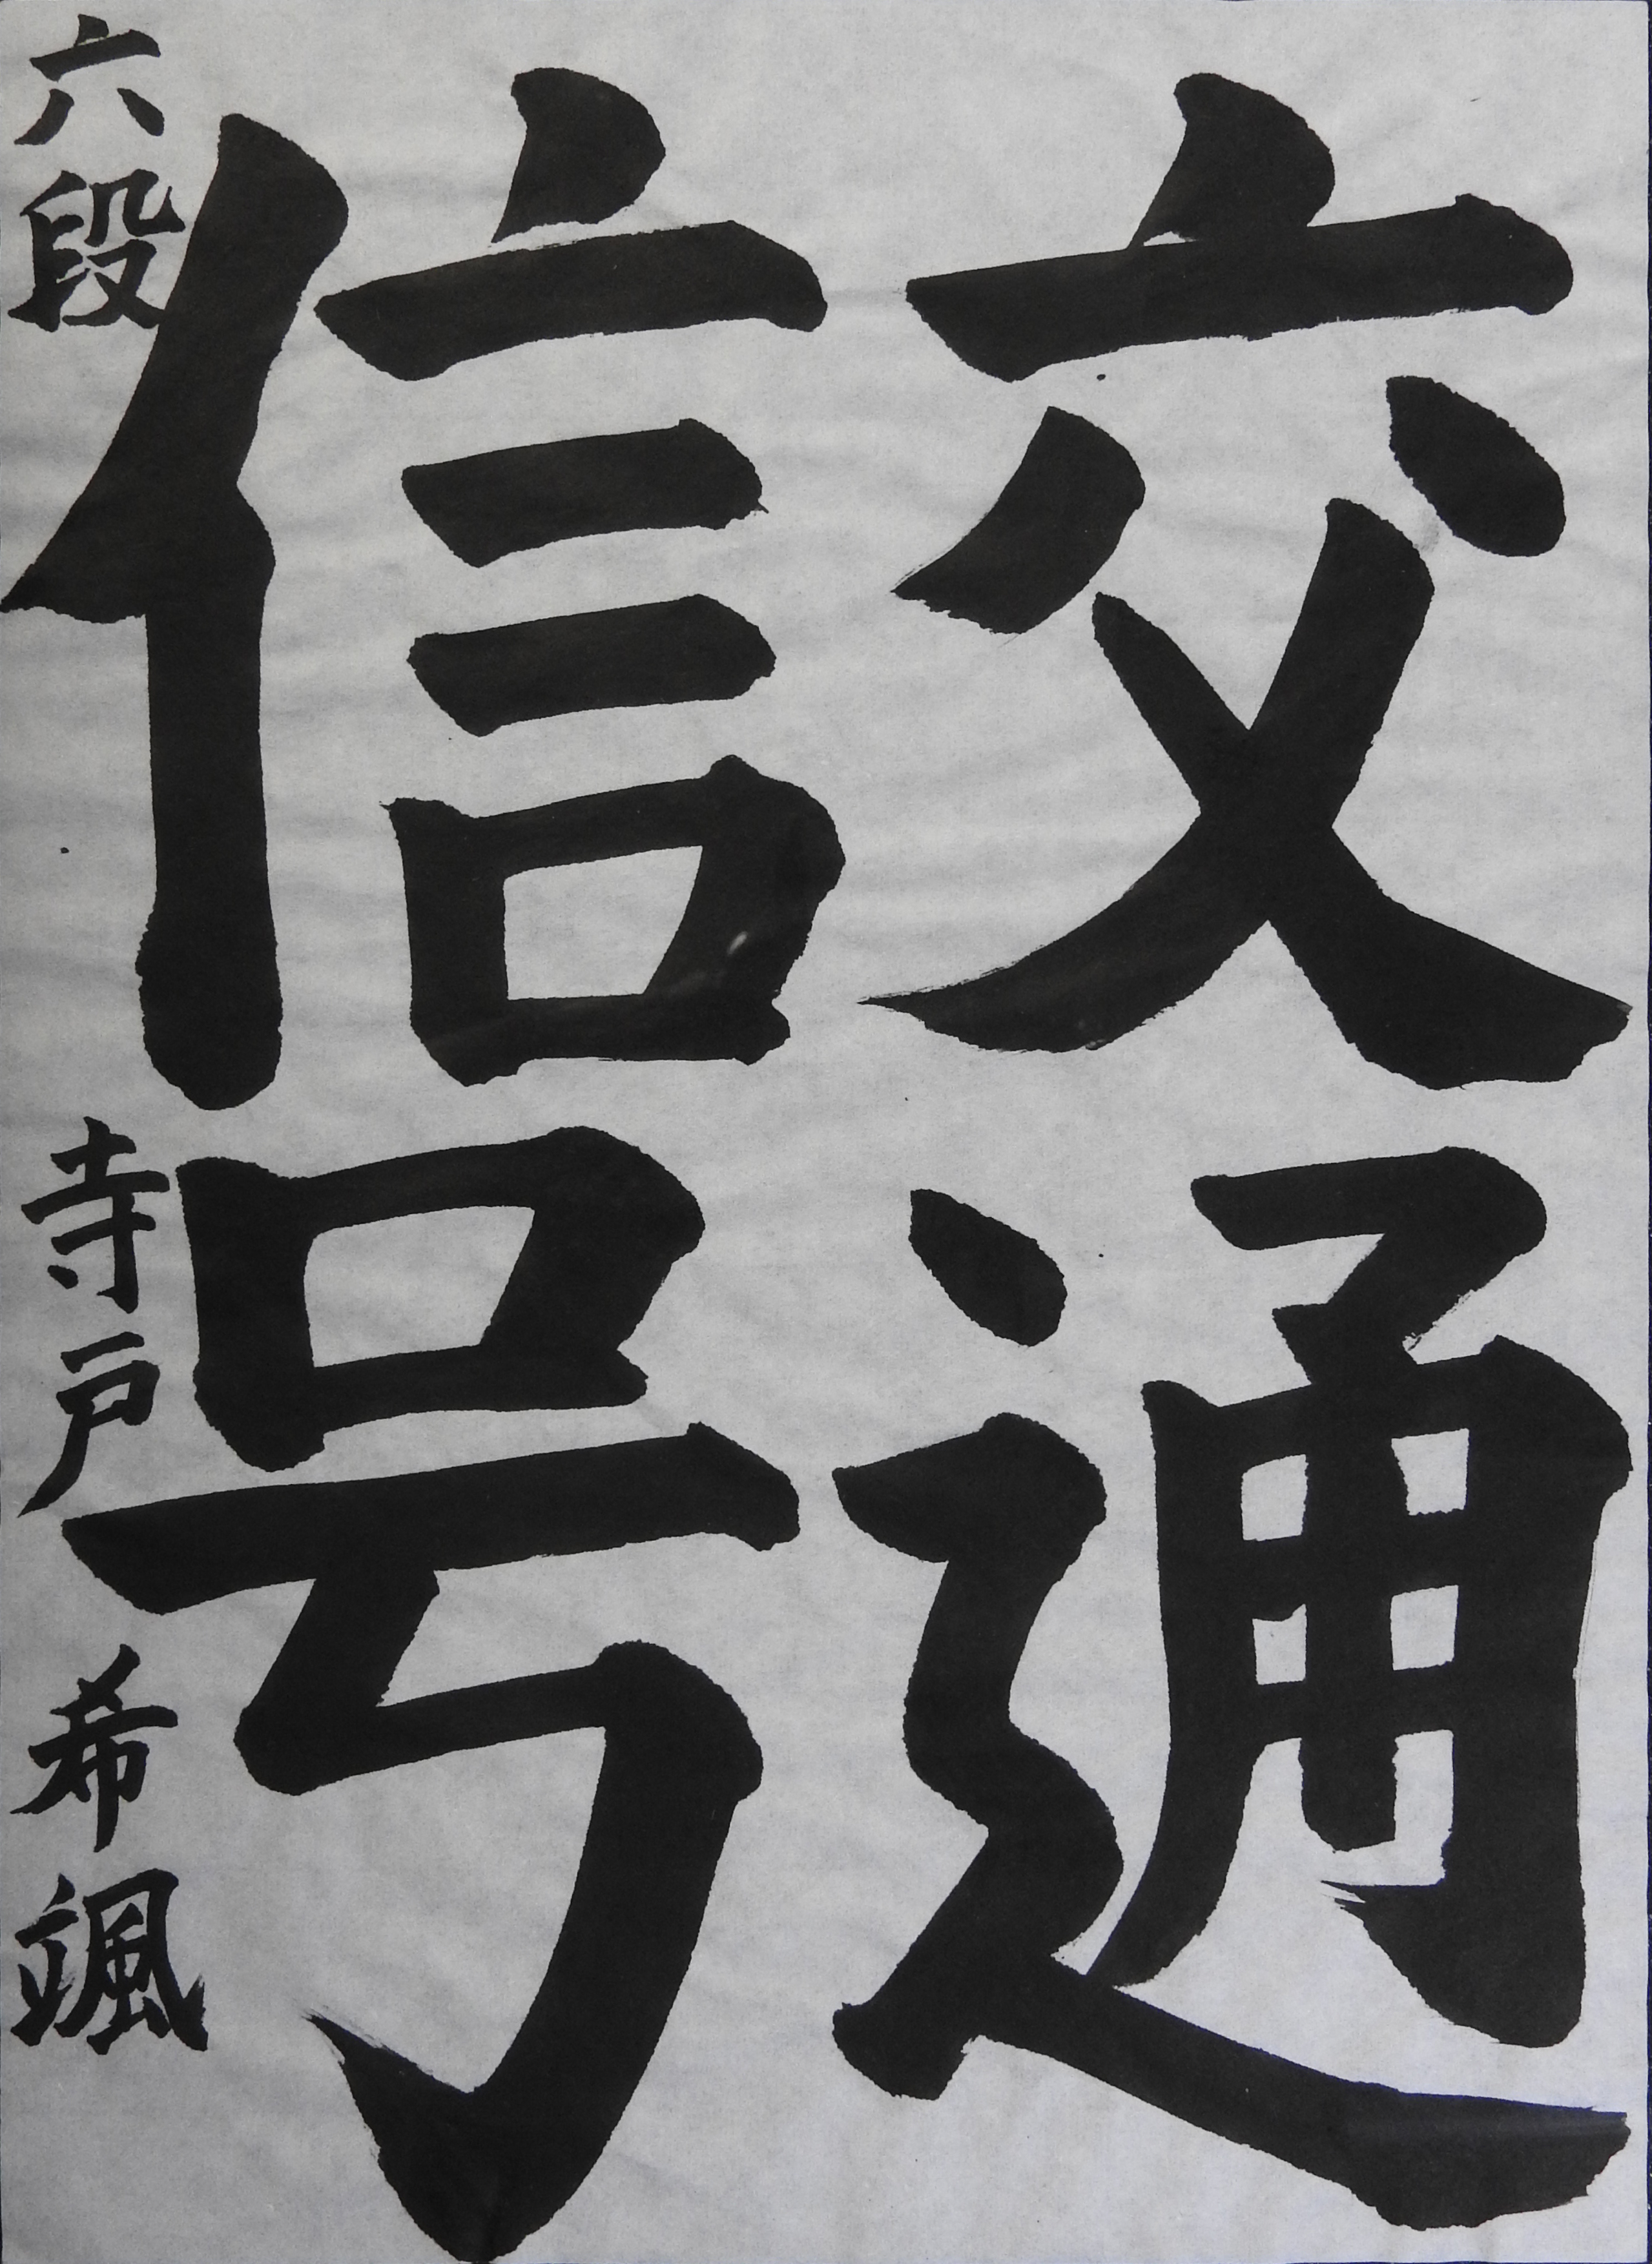 交通
信号
六段 寺戸 希颯